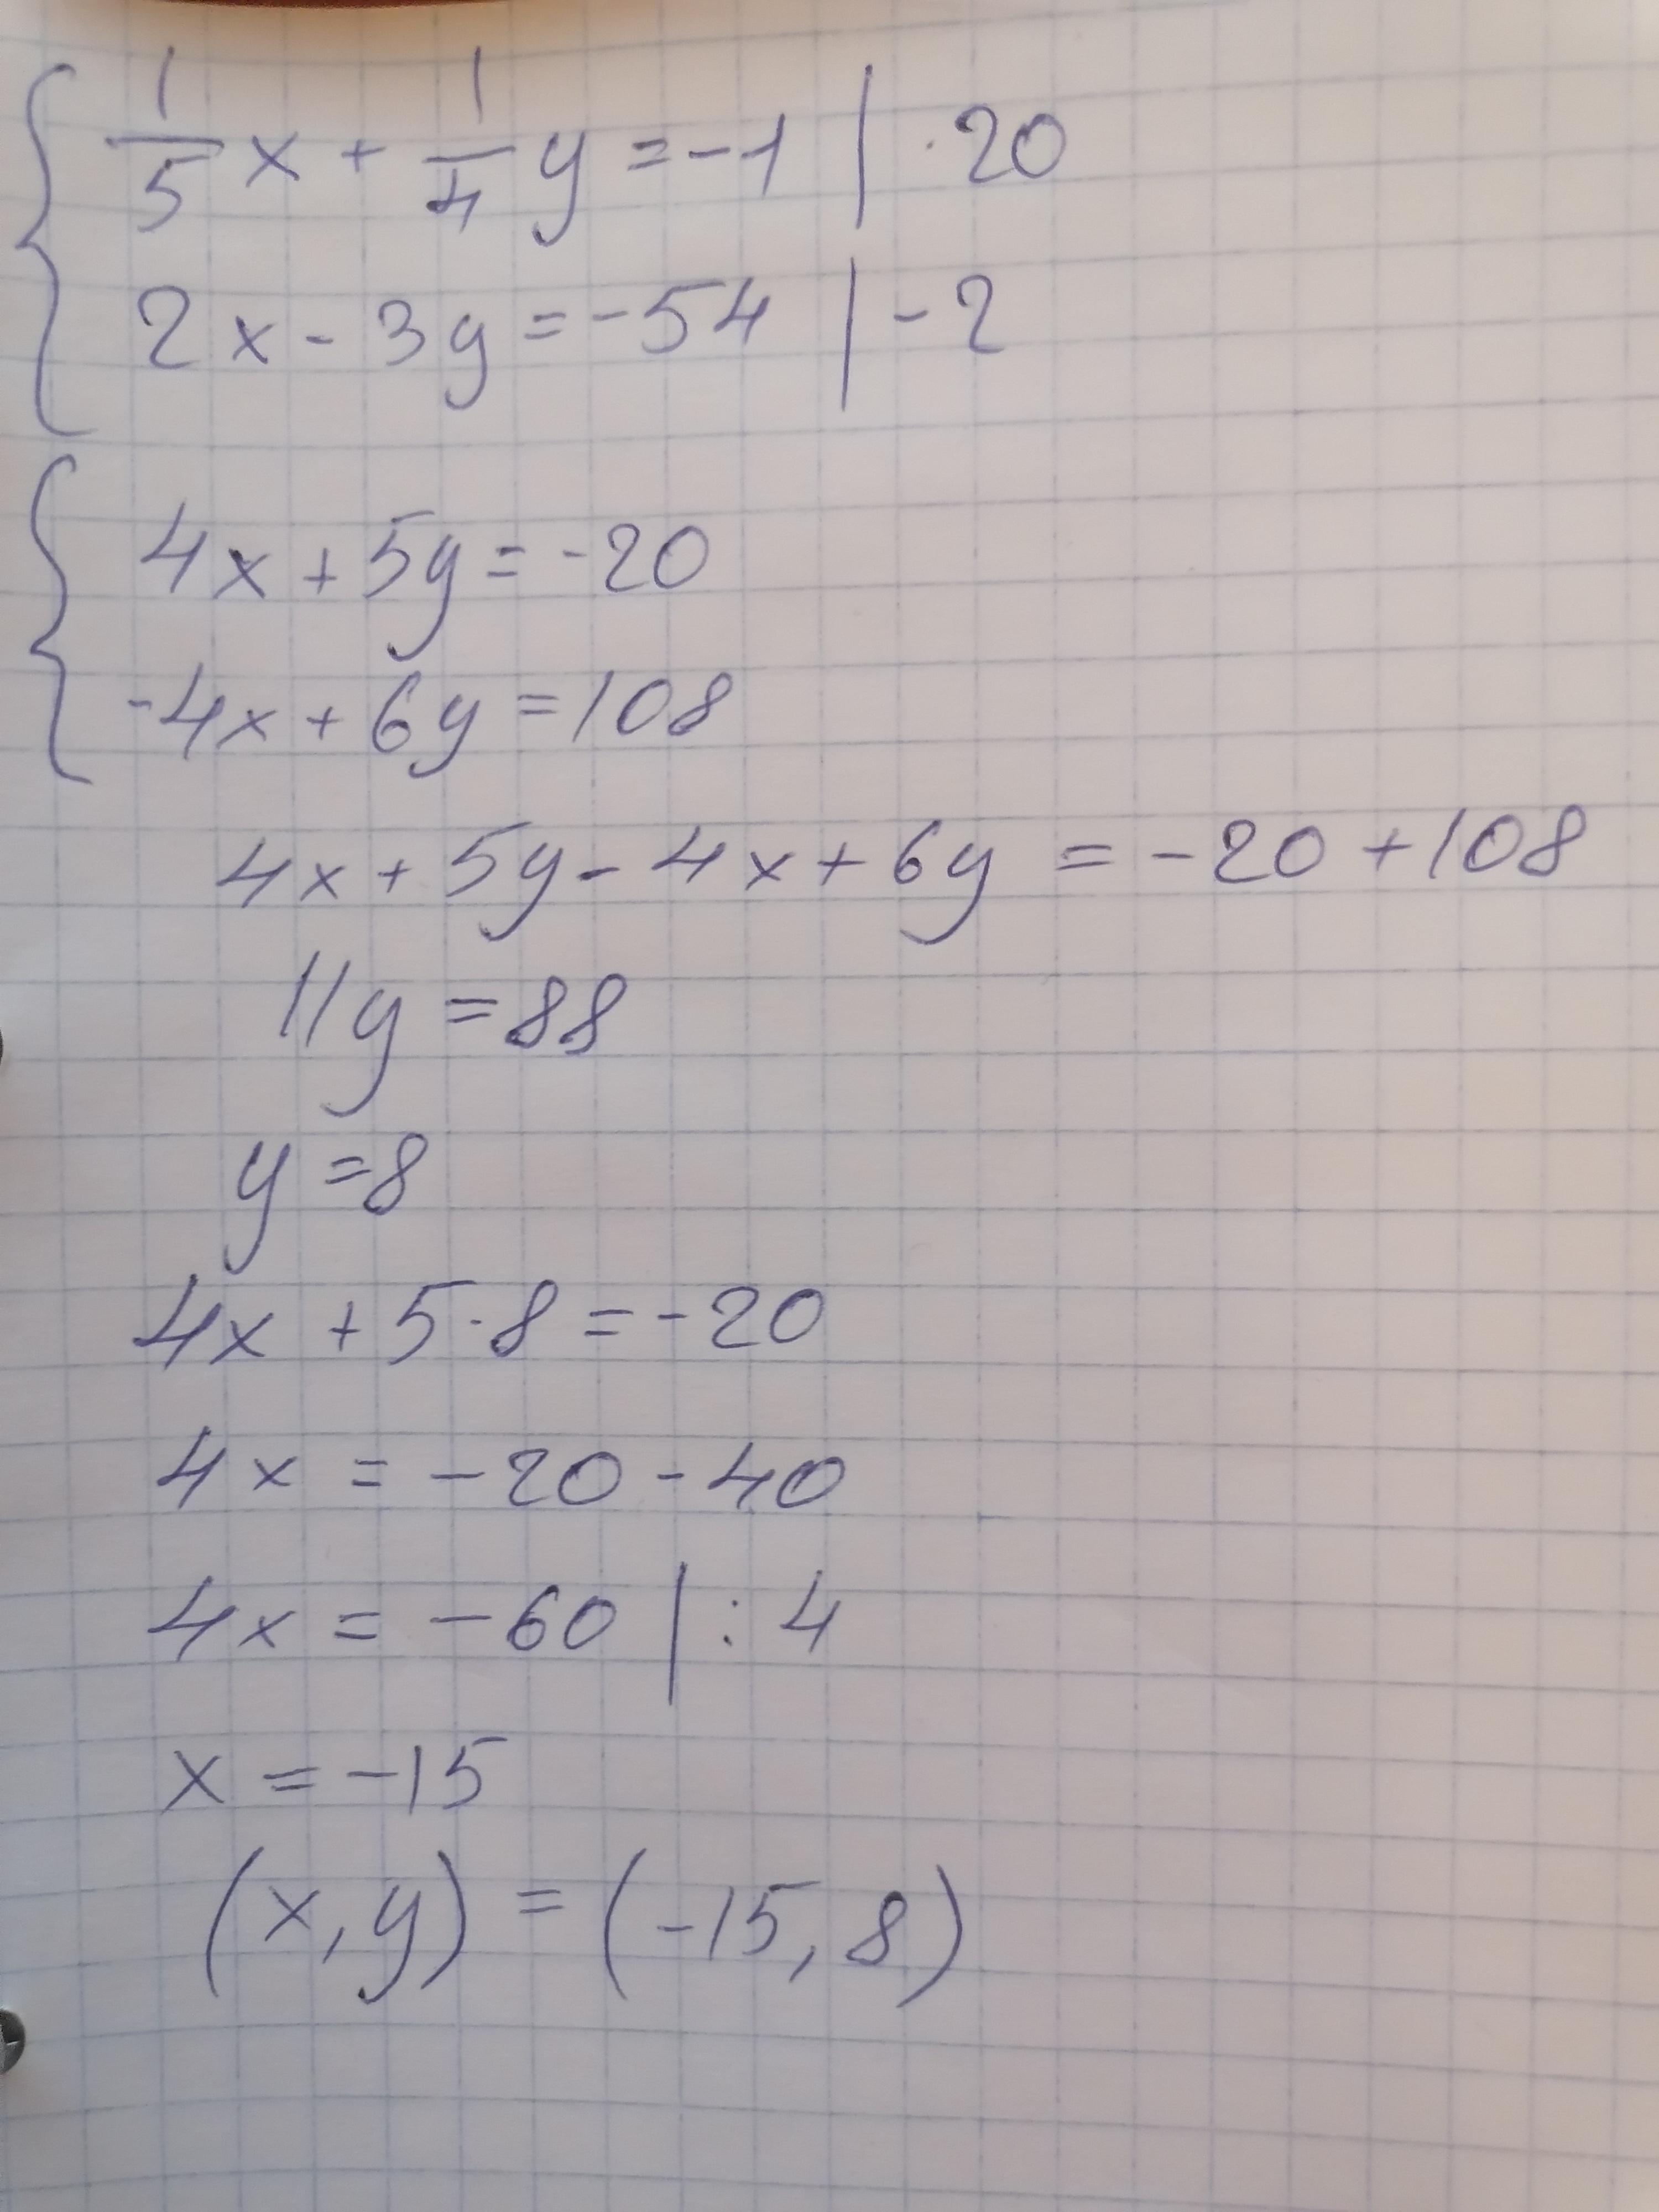 1/5 x + 1/4 y = -1 | · 20
2x - 3y = -54 | - 2
4x + 5y = -20
-4x + 6y = 108
4x + 5y - 4x + 6y = -20 + 108
11y = 88
y = 8
4x + 5·8 = -20
4x = -20 - 40
4x = -60 | : 4
x = -15
(x, y) = (-15, 8)